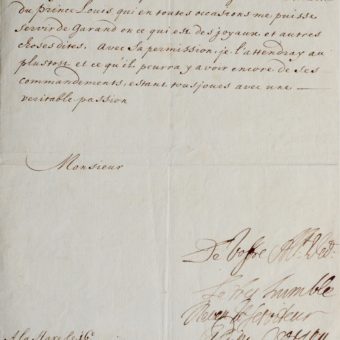 du prince Louis qui en toutes occasions me puisse
servir de Garand en ce qui est des joyaux et autres
choses dites. Avec sa permission, je l'attendray au
plustost et ce qu'il pourra y avoir encore de ses
commandements, estant tousjours avec une
veritable passion
Monsieur
De Vostre Alt.
humble
serviteur
A la Haye le 16